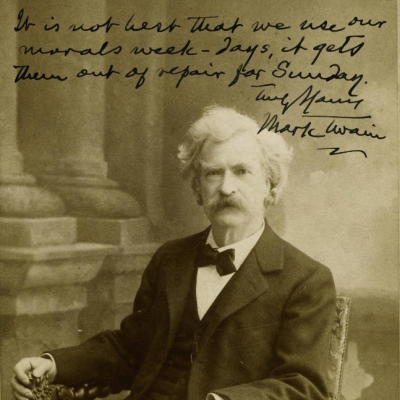 It is not best that we use our
morals week-days, it gets
them out of repair for Sunday.
Truly Yours
Mark Twain